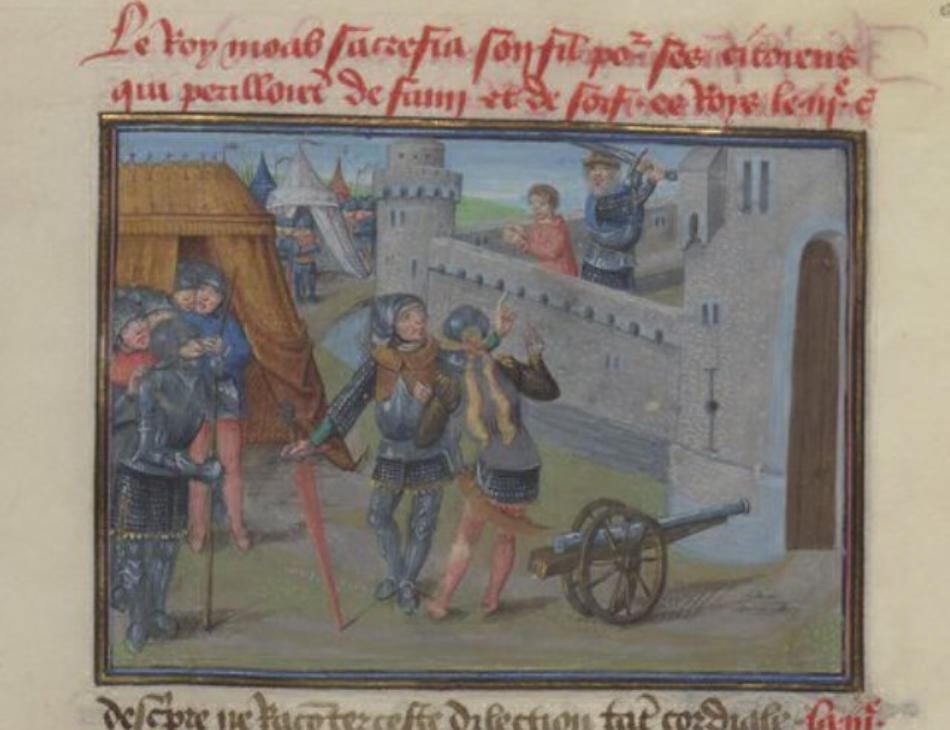 Le Roy moab sacrefia son fil por ses citoiens
qui perilloient de faim et de soif. ee Roys le iije c
descpre ne Racoter ceste dilection tat cordiale. la iije.